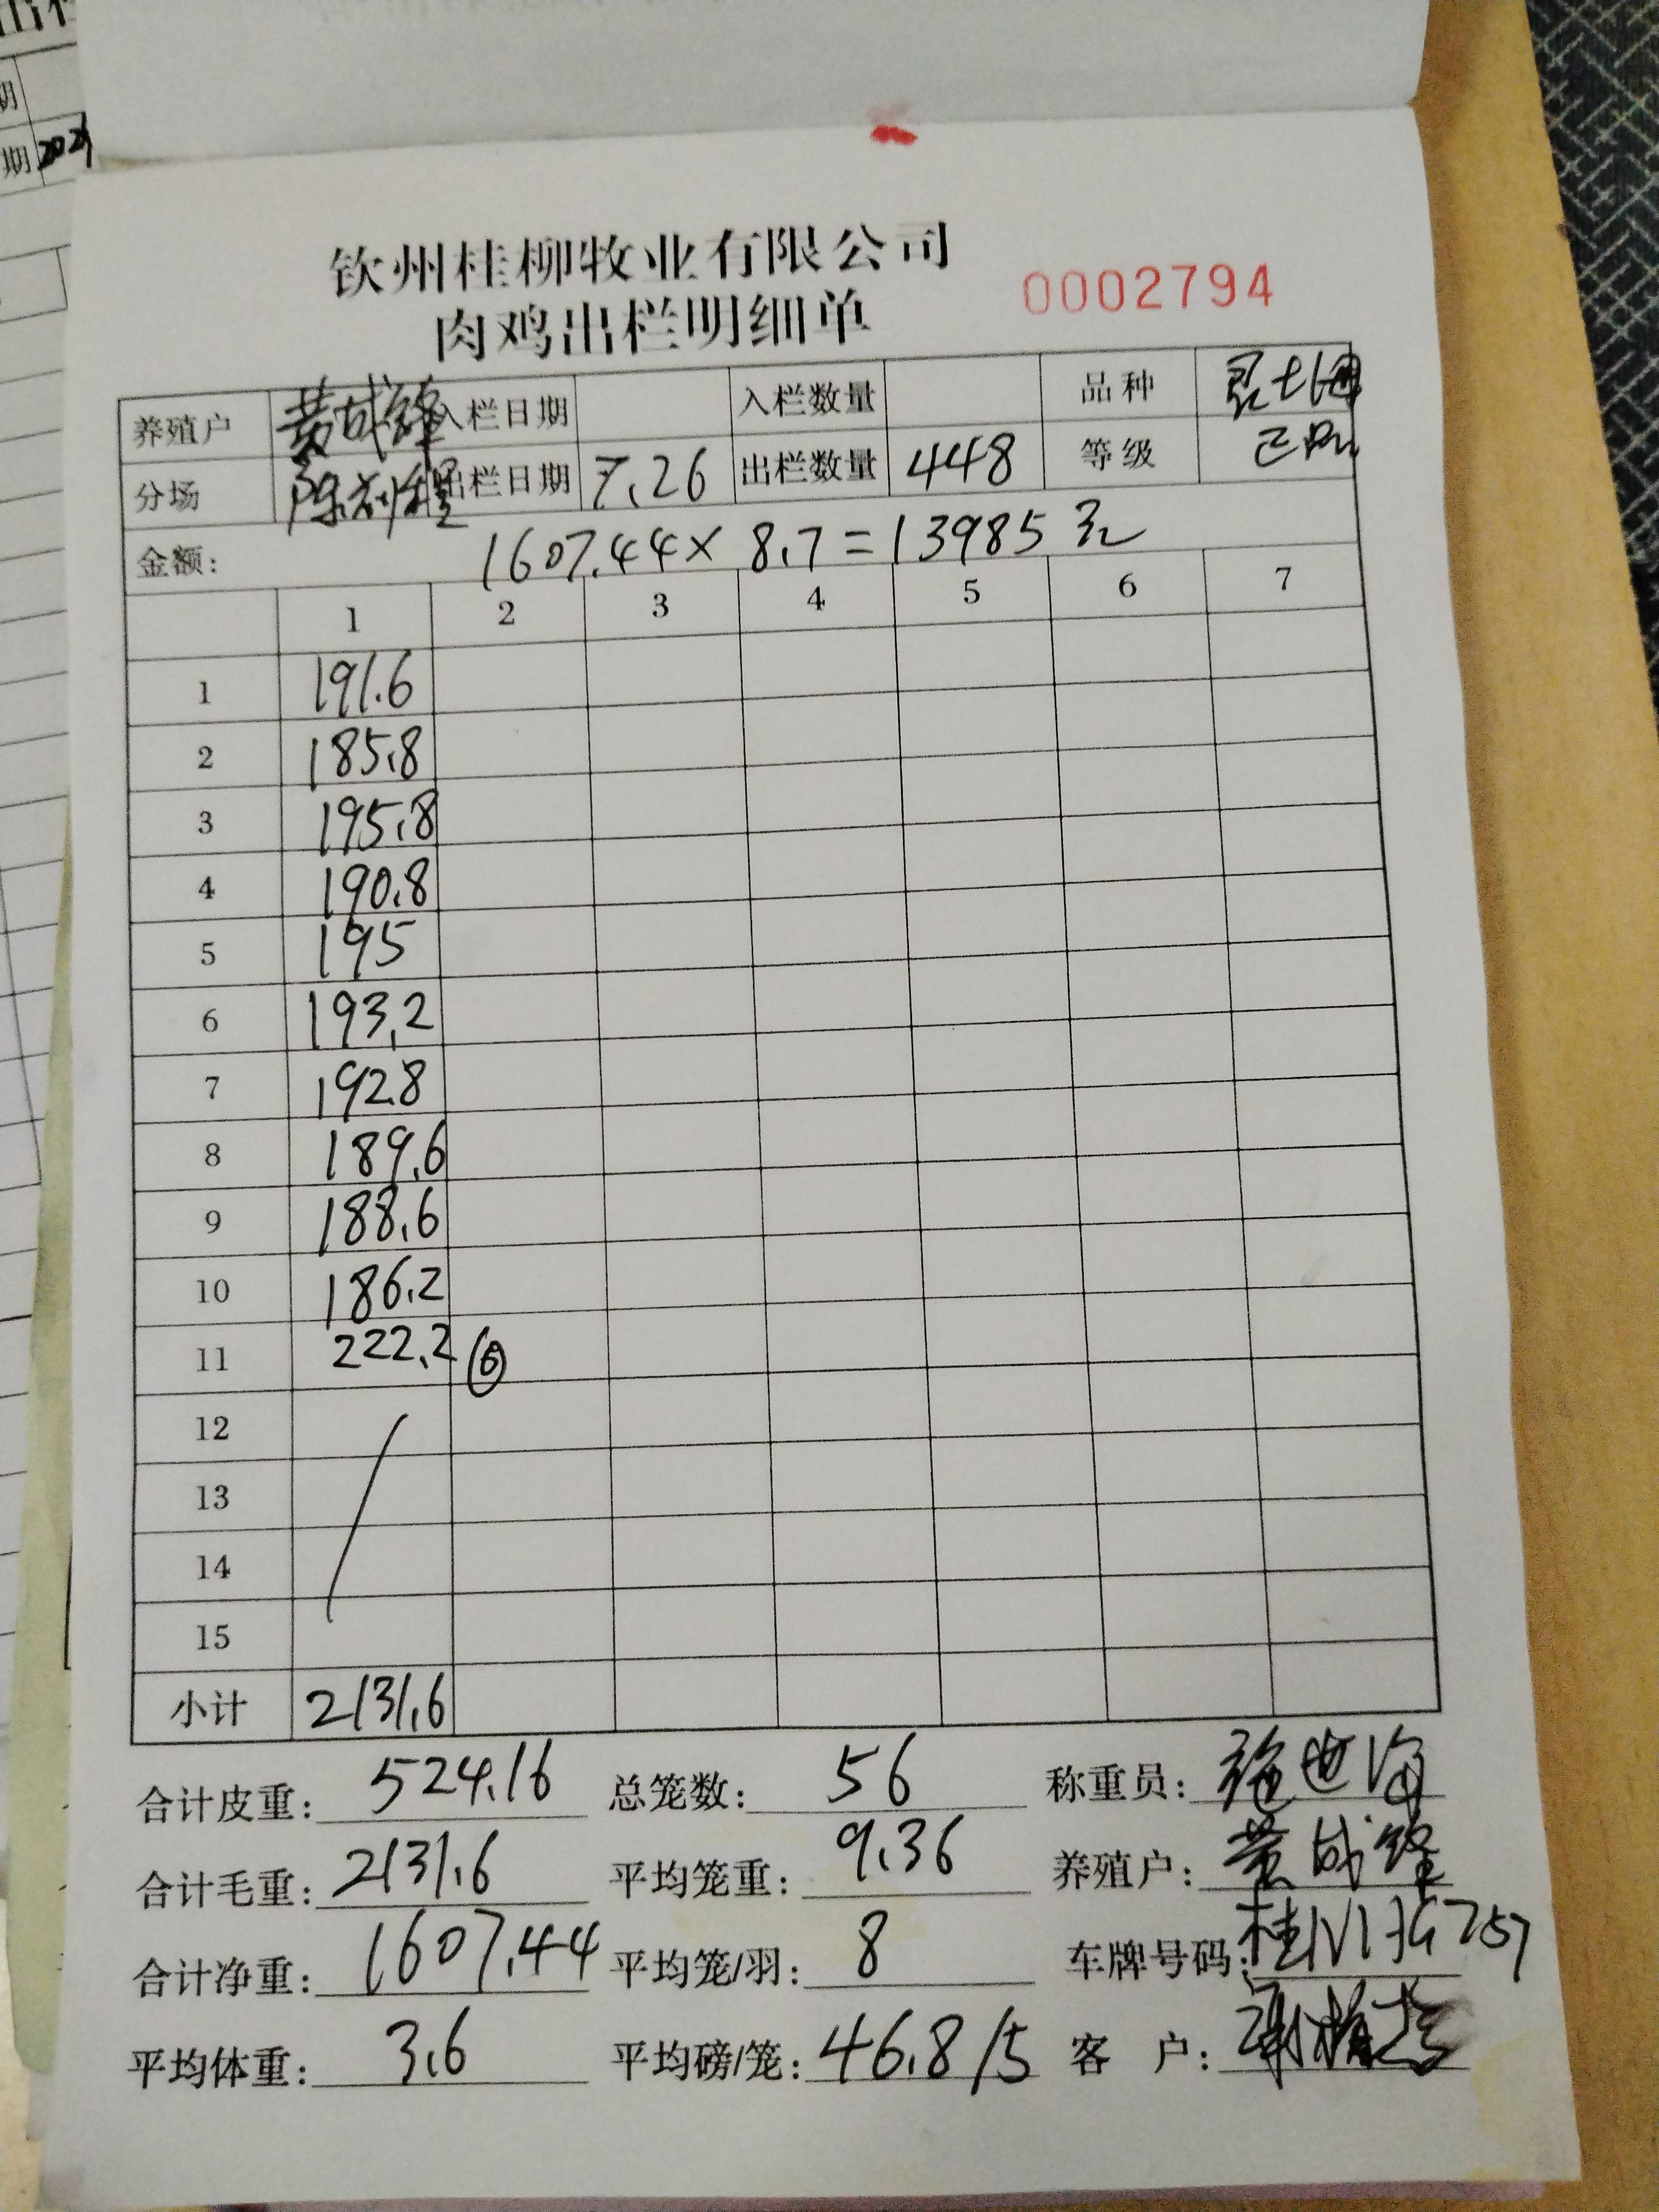 钦州桂柳牧业有限公司
肉鸡出栏明细单
0002794
养殖户 黄成锋 入栏日期 入栏数量 品种
分场 出栏日期 7.26 出栏数量 448 等级 正品
金额: 1607.44×8.7=13985元
1 2 3 4 5 6 7
1 191.6
2 185.8
3 195.8
4 190.8
5 195
6 193.2
7 192.8
8 189.6
9 188.6
10 186.2
11 222.2 ⑥
12
13
14
15
小计 2131.6
合计皮重: 524.16 总笼数: 56 称重员: 施世海
合计毛重: 2131.6 平均笼重: 9.36 养殖户: 黄成锋
合计净重: 1607.44 平均笼/羽: 8 车牌号码:
平均体重: 3.6 平均磅/笼: 46.8/5 客 户:
期 2021